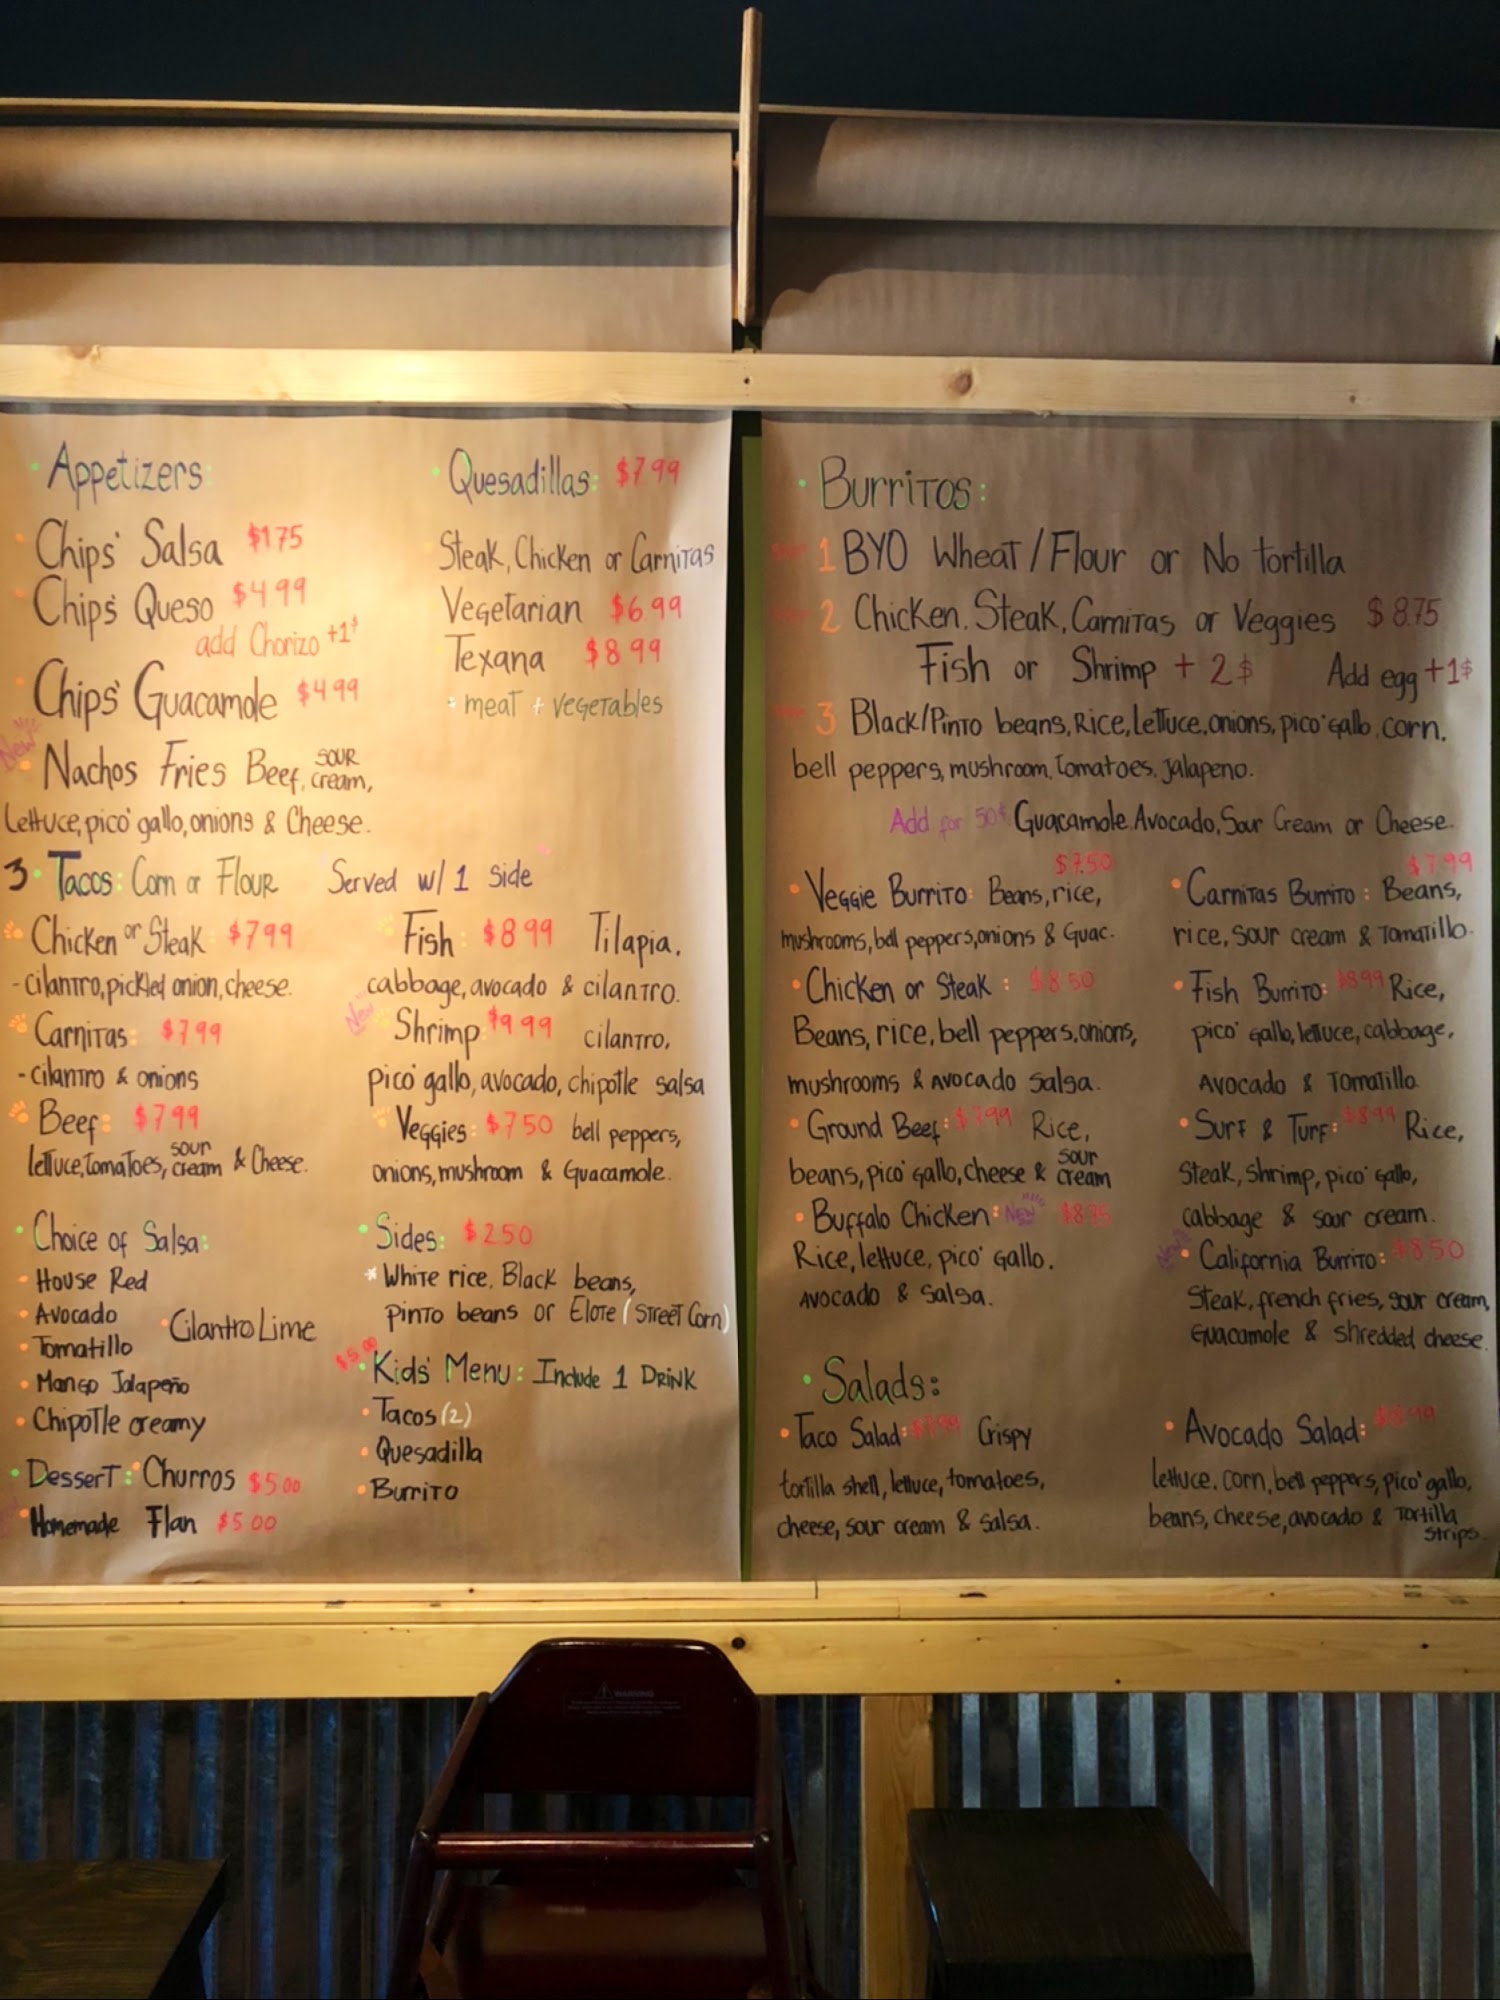 Appetizers:
Chips' Salsa $1.75
Chips' Queso $4.99
add Chorizo +1$
Chips' Guacamole $4.99
New
Nachos Fries Beef, sour cream,
Lettuce, pico' gallo, onions & Cheese.
Quesadillas: $7.99
Steak, Chicken or Carnitas
Vegetarian $6.99
Texana $8.99
* meat + vegetables
3 Tacos: Corn or Flour Served w/ 1 Side
Chicken or Steak $7.99
- cilantro, pickled onion, cheese.
Carnitas: $7.99
- cilantro & onions
Beef: $7.99
lettuce, tomatoes, sour cream & Cheese.
Fish: $8.99 Tilapia,
cabbage, avocado & cilantro.
New
Shrimp: $9.99 cilantro,
pico' gallo, avocado, chipotle salsa
Veggies: $7.50 bell peppers,
onions, mushroom & Guacamole.
Choice of Salsa:
House Red
Avocado
Cilantro Lime
Tomatillo
Mango Jalapeño
Chipotle creamy
Dessert: Churros $5.00
Homemade Flan $5.00
Sides: $2.50
* White rice, Black beans,
pinto beans or Elote (Street Corn)
$5.00
Kids' Menu: Include 1 Drink
Tacos (2)
Quesadilla
Burrito
Burritos:
1 BYO Wheat/Flour or No tortilla
2 Chicken, Steak, Carnitas or Veggies $8.75
Fish or Shrimp + 2$ Add egg +1$
3 Black/Pinto beans, Rice, lettuce, onions, pico' gallo, corn,
bell peppers, mushroom, tomatoes, jalapeno.
Add for 50¢ Guacamole, Avocado, Sour Cream or Cheese.
$7.50
Veggie Burrito: Beans, rice,
mushrooms, bell peppers, onions & Guac.
Chicken or Steak: $8.50
Beans, rice, bell peppers, onions,
mushrooms & Avocado Salsa.
Ground Beef: $7.99 Rice,
beans, pico' gallo, cheese & sour cream
Buffalo Chicken: New $8.75
Rice, lettuce, pico' gallo.
Avocado & Salsa.
$7.99
Carnitas Burrito: Beans,
rice, sour cream & Tomatillo.
Fish Burrito: $8.99 Rice,
pico' gallo, lettuce, cabbage,
Avocado & Tomatillo
Surf & Turf: $8.99 Rice,
Steak, shrimp, pico' gallo,
cabbage & sour cream.
New
California Burrito: $8.50
Steak, french fries, sour cream,
Guacamole & shredded cheese.
Salads:
Taco Salad: $7.99 Crispy
tortilla shell, lettuce, tomatoes,
cheese, sour cream & salsa.
Avocado Salad: $8.99
lettuce, corn, bell peppers, pico' gallo,
beans, cheese, avocado & Tortilla
strips.
WARNING